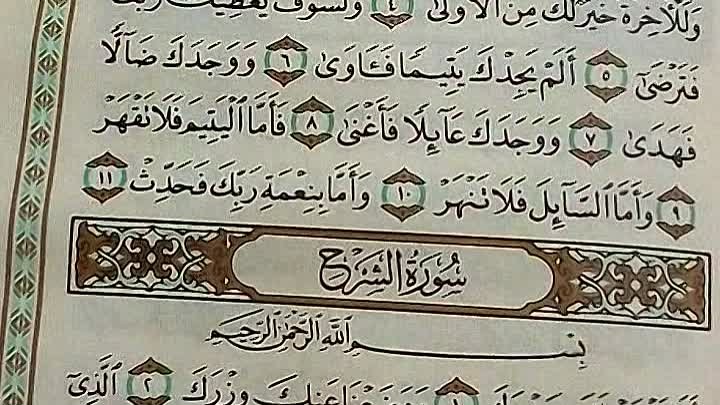 وَلَلْأَخِرَةُ خَيْرٌ لَّكَ مِنَ الْأُولَىٰ ٤ وَلَسَوْفَ يُعْطِيكَ رَبُّكَ
فَتَرْضَىٰ ٥ أَلَمْ يَجِدْكَ يَتِيمًا فَـَٔاوَىٰ ٦ وَوَجَدَكَ ضَآلًّا
فَهَدَىٰ ٧ وَوَجَدَكَ عَآئِلًا فَأَغْنَىٰ ٨ فَأَمَّا ٱلْيَتِيمَ فَلَا تَقْهَرْ
٩ وَأَمَّا ٱلسَّآئِلَ فَلَا تَنْهَرْ ١٠ وَأَمَّا بِنِعْمَةِ رَبِّكَ فَحَدِّثْ ١١
سُورَةُ الشَّرْحِ
بِسْمِ ٱللَّهِ ٱلرَّحْمَٰنِ ٱلرَّحِيمِ
١ وَوَضَعْنَا عَنكَ وِزْرَكَ ٢ ٱلَّذِىٓ